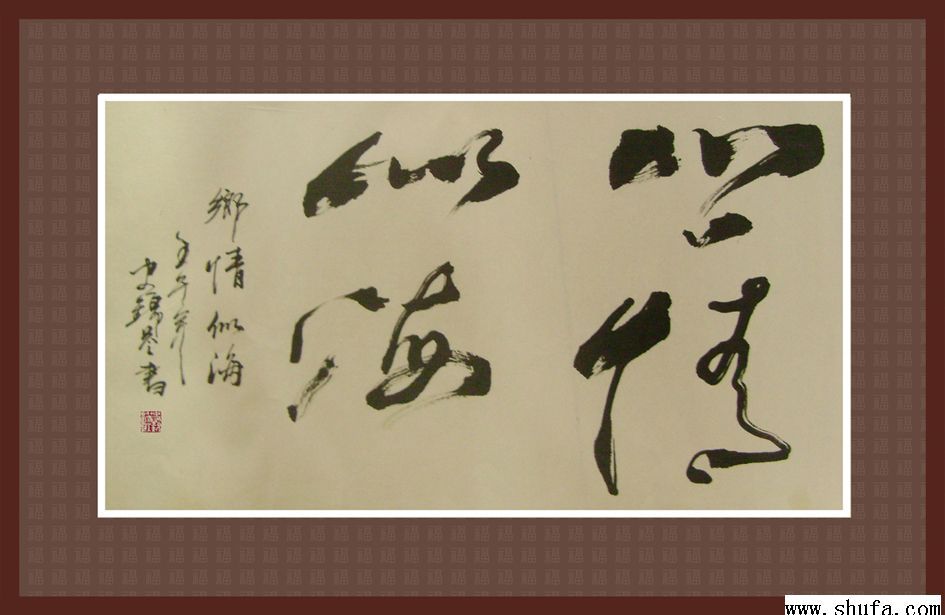 鄉情
似海
鄉情似海
壬午年
史錦昱書
www.shufa.com